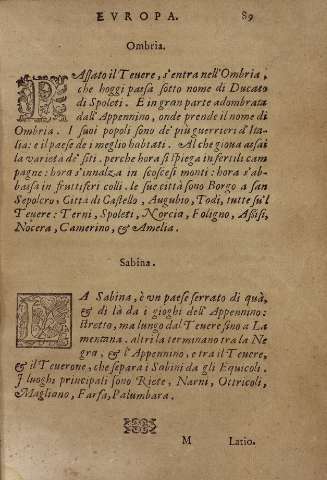 EVROPA. 89
Ombria.
PAſſato il Teuere, s'entra nell'Ombria,
che hoggi paſſa ſotto nome di Ducato
di Spoleti. E in gran parte adombrata
dall'Appennino, onde prende il nome di
Ombria. I ſuoi popoli ſono de' piu guerrieri d'Ita-
lia: e il paeſe de i meglio habitati. Al che gioua aſſai
la varieta de' ſiti. perche hora ſi ſpiega in fertili cam
pagne: hora s'innalza in ſcoſceſi monti: hora s'ab-
baſſa in fruttiferi colli. le ſue città ſono Borgo a ſan
Sepolcro, Citta di Caſtello, Augubio, Todi, tutte ſu'l
Teuere: Terni, Spoleti, Norcia, Foligno, Aſſiſi,
Nocera, Camerino, & Amelia.
Sabina.
LA Sabina, è vn paeſe ſerrato di quà,
& di là da i gioghi dell'Appennino:
ſtretto, ma lungo dal Teuere ſino a La
mentana. altri la terminano tra la Ne
gra, & l'Appennino, e tra il Teuere,
& il Teuerone, che ſepara i Sabini da gli Equicoli.
I luoghi principali ſono Riete, Narni, Ottricoli,
Magliano, Farfa, Palumbara.
M Latio.